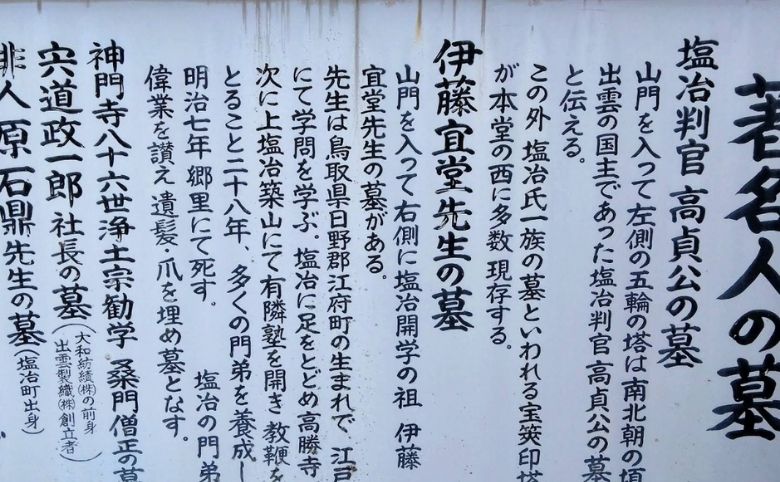 著名人の墓
塩冶判官 高貞公の墓
山門を入って左側の五輪の塔は南北朝の頃
出雲の国主であった塩冶判官高貞公の墓
と伝える。
この外 塩冶氏一族の墓といわれる宝筴印塔
が本堂の西に多数 現存する。
伊藤宜堂先生の墓
山門を入って右側に塩冶開学の祖 伊藤
宜堂先生の墓がある。
先生は鳥取県日野郡江府町の生まれで、江戸
にて学問を学ぶ。塩冶に足をとどめ高勝寺
次に上塩冶築山にて有隣塾を開き 教鞭を
とること二十八年、多くの門弟を養成し
明治七年 郷里にて死す。 塩冶の門弟
偉業を讃え 遺髪・爪を埋め墓となす。
神門寺八十六世浄土宗勧学 桑門僧正の墓
宍道政一郎 社長の墓(大和紡績㈱の前身
出雲製織㈱創立者)
俳人 原石鼎先生の墓(塩冶町出身)